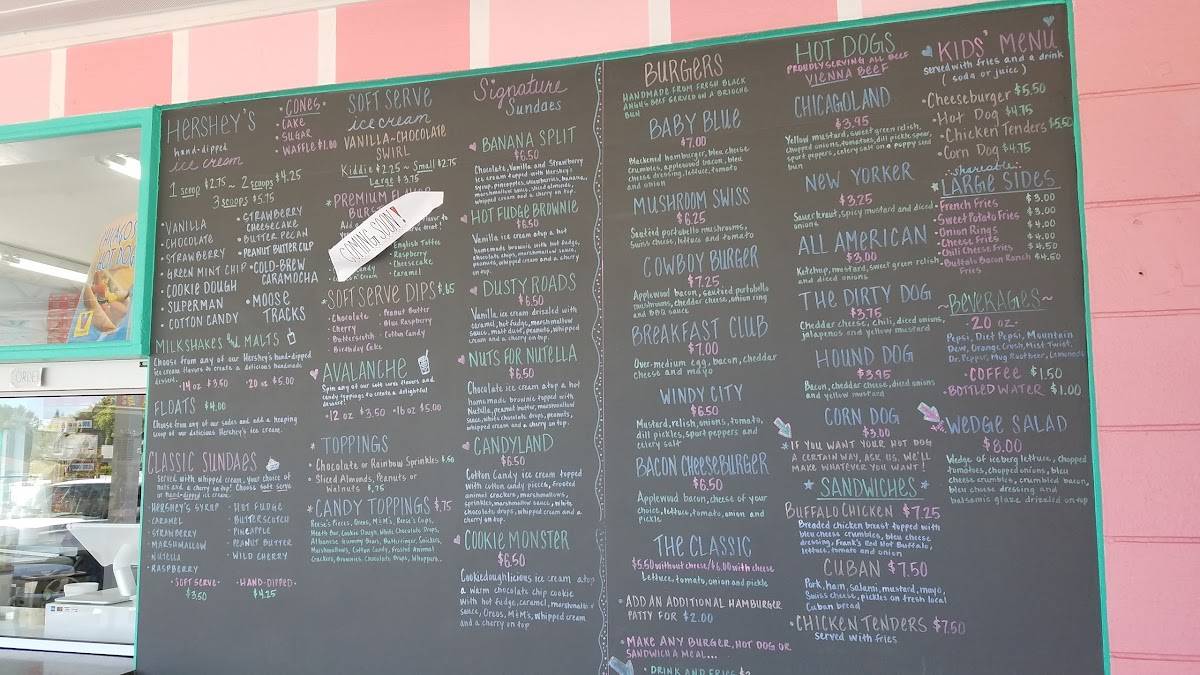 HERSHEY'S
hand-dipped
ice cream
1 scoop $2.75 ~ 2 scoops $4.25
3 scoops $5.75
• VANILLA
• CHOCOLATE
• STRAWBERRY
• GREEN MINT CHIP
• COOKIE DOUGH
• SUPERMAN
• COTTON CANDY
• STRAWBERRY
CHEESECAKE
• BUTTER PECAN
• PEANUT BUTTER CUP
• COLD-BREW
CARAMOCHA
• MOOSE
TRACKS
• CONES •
• CAKE
• SUGAR
• WAFFLE $1.00
MILKSHAKES 'N MALTS
Choose from any of our Hershey's hand-dipped
ice cream flavors to create a delicious handmade
dessert.
• 14 oz $3.50 • 20 oz $5.00
FLOATS $4.00
Choose from any of our sodas and add a heaping
scoop of our delicious Hershey's ice cream.
CLASSIC SUNDAES
Served with whipped cream, your choice of
nuts and a cherry on top! Choose soft serve
or hand-dipped ice cream.
• HERSHEY'S SYRUP
• CARAMEL
• STRAWBERRY
• MARSHMALLOW
• NUTELLA
• RASPBERRY
• HOT FUDGE
• BUTTERSCOTCH
• PINEAPPLE
• PEANUT BUTTER
• WILD CHERRY
• SOFT SERVE •
$3.50
• HAND-DIPPED •
$4.25
SOFT SERVE
ice cream
VANILLA ~ CHOCOLATE
SWIRL
Kiddie $2.25 ~ Small $2.75
Large $3.75
* PREMIUM FLAVOR
COMING SOON!
English Toffee
Raspberry
Cheesecake
Caramel
* SOFT SERVE DIPS $.65
• Chocolate
• Cherry
• Butterscotch
• Birthday Cake
• Peanut Butter
• Blue Raspberry
• Cotton Candy
AVALANCHE
Spin any of our soft serve flavors and
candy toppings to create a delightful
dessert!
• 12 oz $3.50 • 16 oz $5.00
* TOPPINGS
• Chocolate or Rainbow Sprinkles $.50
• Sliced Almonds, Peanuts or
Walnuts $.75
* CANDY TOPPINGS $.75
Reese's Pieces, Oreos, M&M's, Reese's Cups,
Heath Bar, Cookie Dough, White Chocolate Drops,
Albanese Gummy Bears, Butterfinger, Snickers,
Marshmallows, Cotton Candy, Frosted Animal
Crackers, Brownies, Chocolate Drops, Whoppers..
Signature
Sundaes
BANANA SPLIT
$6.50
Chocolate, Vanilla and Strawberry
ice cream topped with Hershey's
syrup, pineapples, strawberries, banana,
marshmallow sauce, sliced almonds,
whipped cream and a cherry on top.
HOT FUDGE BROWNIE
$6.50
Vanilla ice cream atop a hot
homemade brownie with hot fudge,
chocolate chips, marshmallow sauce,
peanuts, whipped cream and a cherry
on top.
DUSTY ROADS
$6.50
Vanilla ice cream drizzled with
caramel, hot fudge, marshmallow
sauce, malt dust, peanuts, whipped
cream and a cherry on top.
NUTS FOR NUTELLA
$6.50
Chocolate ice cream atop a hot
homemade brownie topped with
Nutella, peanut butter, marshmallow
sauce, white chocolate drops, peanuts,
whipped cream and a cherry on top.
CANDYLAND
$6.50
Cotton Candy ice cream topped
with cotton candy pieces, frosted
animal crackers, marshmallows,
sprinkles, marshmallow sauce, white
chocolate drops, whipped cream and a
cherry on top.
COOKIE MONSTER
$6.50
Cookiedoughlicious ice cream atop
a warm chocolate chip cookie
with hot fudge, caramel, marshmallow
sauce, Oreos, M&M's, whipped cream
and a cherry on top
BURGERS
HANDMADE FROM FRESH BLACK
ANGUS BEEF SERVED ON A BRIOCHE
BUN
BABY BLUE
$7.00
Blackened hamburger, bleu cheese
crumbles, applewood bacon, bleu
cheese dressing, lettuce, tomato
and onion
MUSHROOM SWISS
$6.25
Sautéed portobello mushrooms,
Swiss cheese, lettuce and tomato
COWBOY BURGER
$7.25
Applewood bacon, sautéed portobello
mushrooms, cheddar cheese, onion ring
and BBQ sauce
BREAKFAST CLUB
$7.00
Over-medium egg, bacon, cheddar
cheese and mayo
WINDY CITY
$6.50
Mustard, relish, onions, tomato,
dill pickles, sport peppers and
celery salt
BACON CHEESEBURGER
$6.50
Applewood bacon, cheese of your
choice, lettuce, tomato, onion and
pickle
THE CLASSIC
$5.50 without cheese/$6.00 with cheese
Lettuce, tomato, onion and pickle
• ADD AN ADDITIONAL HAMBURGER
PATTY FOR $2.00
• MAKE ANY BURGER, HOT DOG OR
SANDWICH A MEAL...
• DRINK AND FRIES
HOT DOGS
PROUDLY SERVING ALL BEEF
VIENNA BEEF
CHICAGOLAND
$3.95
Yellow mustard, sweet green relish,
chopped onions, tomatoes, dill pickle spear,
sport peppers, celery salt on a poppy seed
bun
NEW YORKER
$3.25
Sauerkraut, spicy mustard and diced
onions
ALL AMERICAN
$3.00
Ketchup, mustard, sweet green relish
and diced onions
THE DIRTY DOG
$3.75
Cheddar cheese, chili, diced onions,
jalapenos and yellow mustard
HOUND DOG
$3.95
Bacon, cheddar cheese, diced onions
and yellow mustard
CORN DOG
$3.00
* IF YOU WANT YOUR HOT DOG
A CERTAIN WAY, ASK US. WE'LL
MAKE WHATEVER YOU WANT!
SANDWICHES
BUFFALO CHICKEN $7.25
Breaded chicken breast topped with
bleu cheese crumbles, bleu cheese
dressing, Frank's Red Hot Buffalo,
lettuce, tomato and onion
CUBAN $7.50
Pork, ham, salami, mustard, mayo,
Swiss cheese, pickles on fresh local
Cuban bread
• CHICKEN TENDERS $7.50
served with fries
KIDS' MENU
served with fries and a drink
(soda or juice)
• Cheeseburger $5.50
• Hot Dog $4.75
• Chicken Tenders $5.50
• Corn Dog $4.75
shareable
* LARGE SIDES
• French Fries $3.00
• Sweet Potato Fries $4.00
• Onion Rings $4.00
• Cheese Fries $4.00
• Chili Cheese Fries $4.50
• Buffalo Bacon Ranch $4.50
Fries
~BEVERAGES~
• 20 oz •
Pepsi, Diet Pepsi, Mountain
Dew, Orange Crush, Mist Twist,
Dr. Pepper, Mug Root beer, Lemonade
• COFFEE $1.50
• BOTTLED WATER $1.00
WEDGIE SALAD
$8.00
Wedge of iceberg lettuce, chopped
tomatoes, chopped onions, bleu
cheese crumbles, crumbled bacon,
bleu cheese dressing and
balsamic glaze drizzled on top
CHICAGO'S
HOT DOG
ORDER